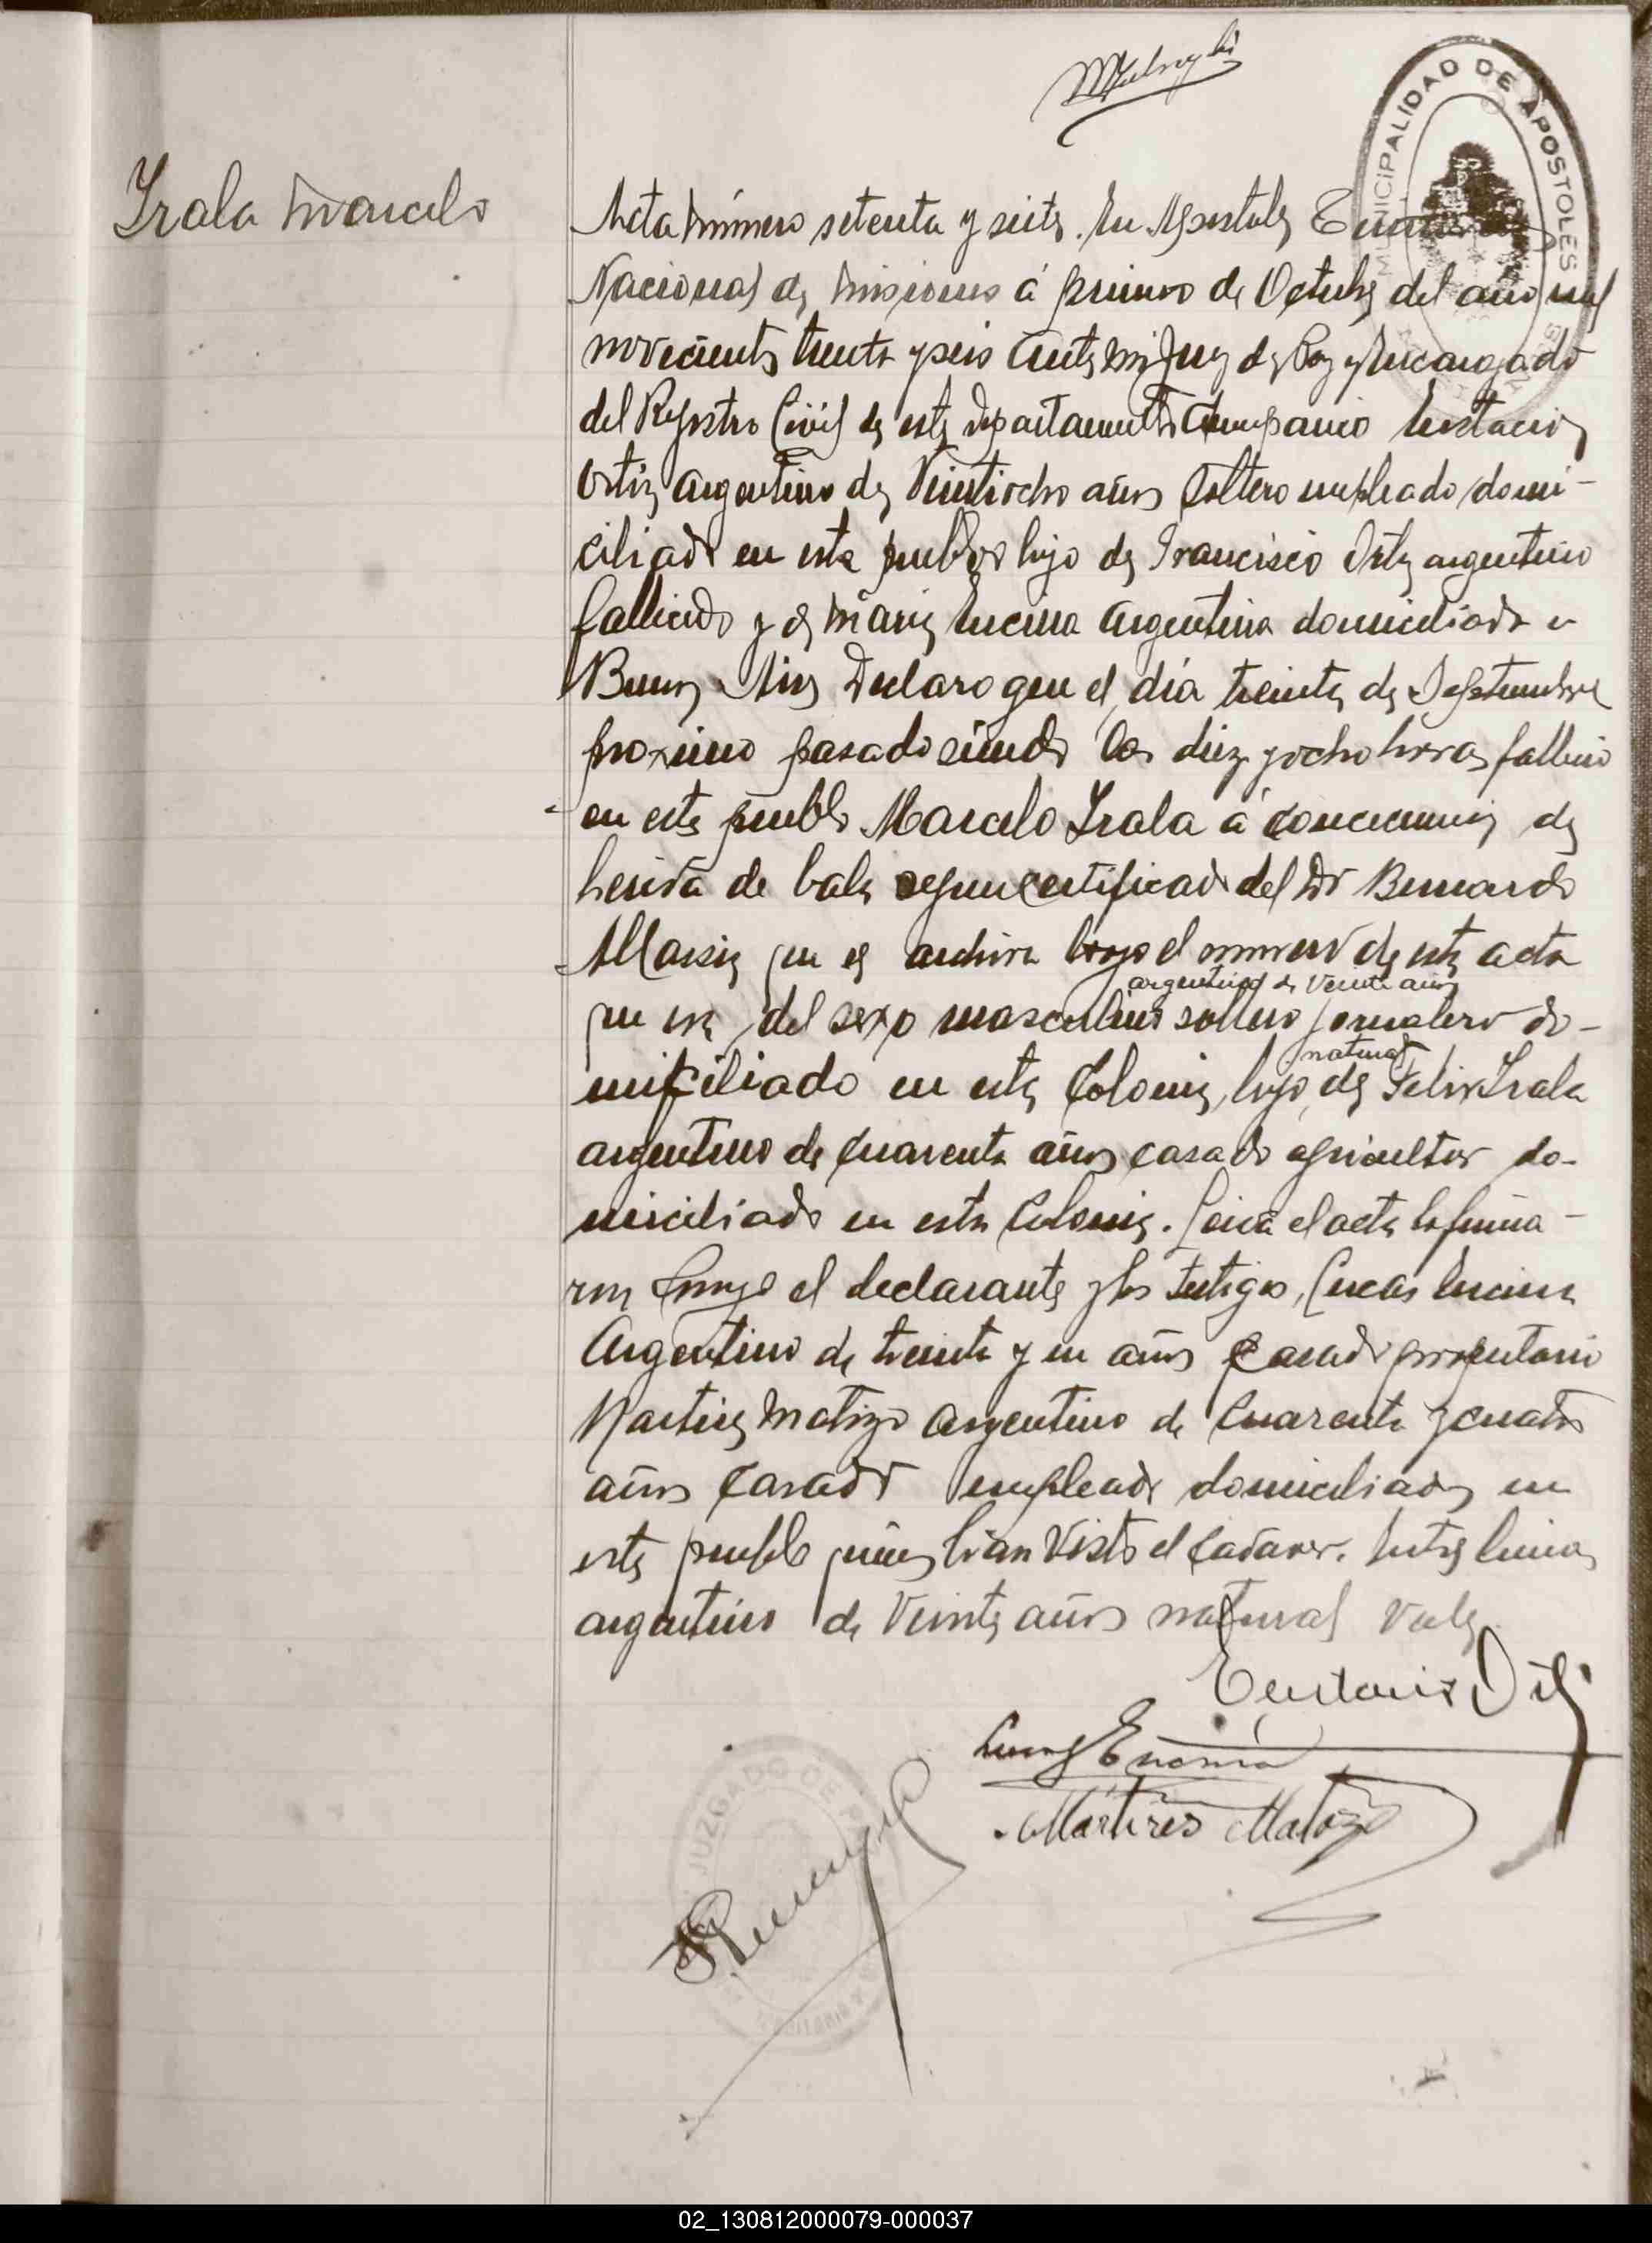 MUNICIPALIDAD DE APOSTOLES
Irala Marcelo
Acta Número setenta y siete. En Apostoles
Nacional de Misiones á primero de Octubre del año mil
novecientos treinta y seis Ante mi Juez de Paz y Encargado
del Registro Civil de este departamento Comparecio Eustacio
Ortiz Argentino de Veintiocho años soltero empleado domi-
ciliado en este pueblo hijo de Francisco Ortiz argentino
fallecido y de Maria Encina Argentina domiciliada
Buenos Aires Declaro que el dia treinta de Septiembre
proximo pasado siendo las diez y ocho horas fallecio
en este pueblo Marcelo Irala á consecuencia de
herida de bala segun certificado del Dr Bernardo
que se archiva bajo el numero de esta acta
argentino de Veinte años
que era del sexo masculino soltero jornalero do-
natural
miciliado en esta Colonia, hijo de Felix Irala
argentino de cuarenta años casado agricultor do-
miciliado en esta Colonia. Leida el acta la firma-
ron conmigo el declarante y los testigos, Lucas Encina
Argentino de treinta y un años casado
Martires Matozo argentino de cuarenta y cuatro
años casado empleado domiciliados en
este pueblo quienes han Visto el cadaver. Entre lineas
argentino de Veinte años natural Vale
Eustacio Ortiz
Lucas Encina
Martires Matozo
JUZGADO DE P
02_130812000079-000037